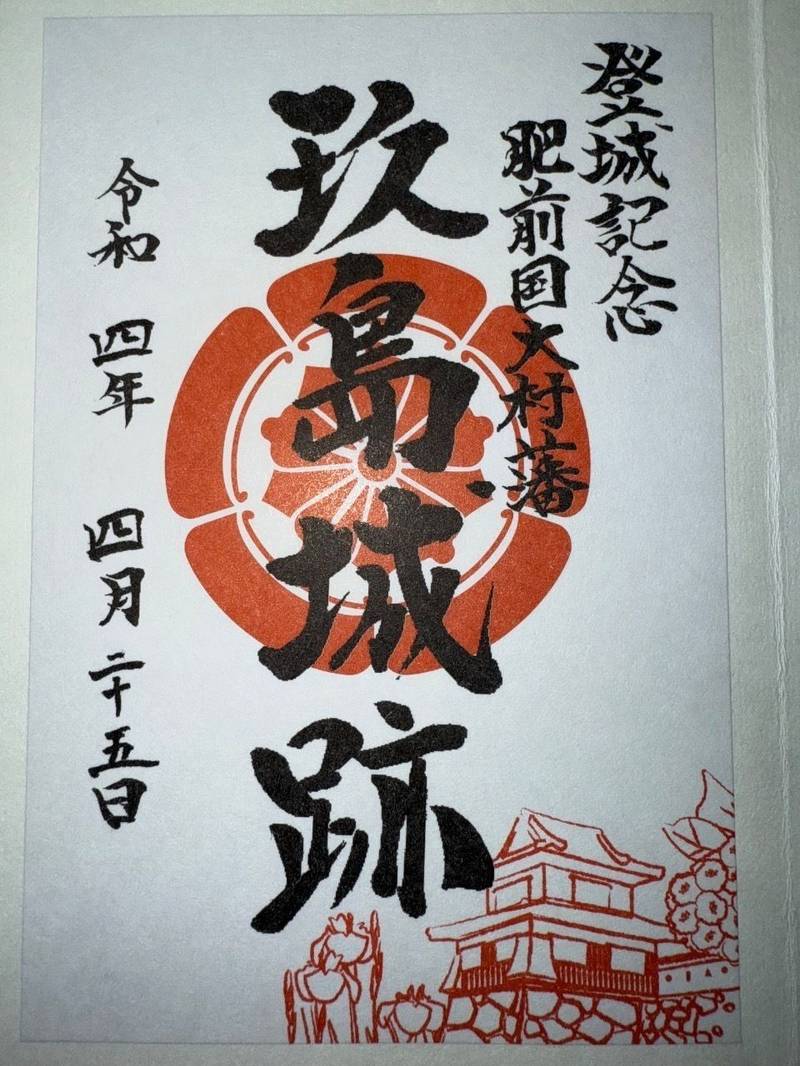 登城記念
肥前国大村藩
玖島城跡
令和 四年 四月 二十五日